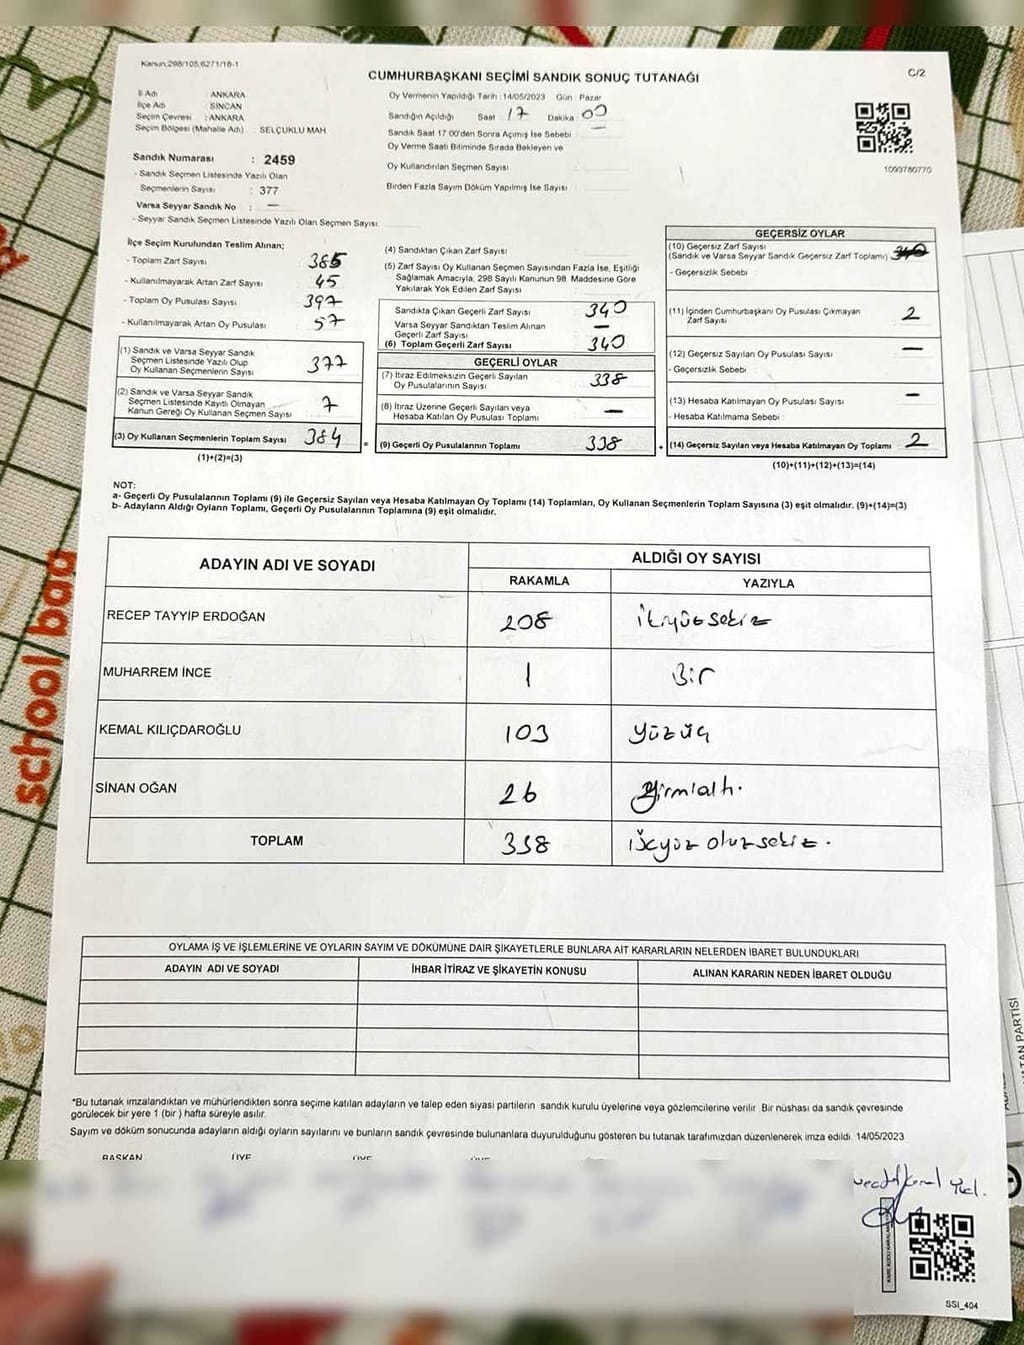 Kanun,298/105,6271/18-1
C/2
CUMHURBAŞKANI SEÇİMİ SANDIK SONUÇ TUTANAĞI
İl Adı : ANKARA
İlçe Adı : SİNCAN
Seçim Çevresi : ANKARA
Seçim Bölgesi (Mahalle Adı) : SELÇUKLU MAH
Sandık Numarası : 2459
- Sandık Seçmen Listesinde Yazılı Olan
Seçmenlerin Sayısı : 377
Varsa Seyyar Sandık No : —
- Seyyar Sandık Seçmen Listesinde Yazılı Olan Seçmen Sayısı
Oy Vermenin Yapıldığı Tarih : 14/05/2023 Gün : Pazar
Sandığın Açıldığı Saat : 17 Dakika : 00
Sandık Saat 17:00'den Sonra Açılmış İse Sebebi : —
Oy Verme Saati Bitiminde Sırada Bekleyen ve
Oy Kullandırılan Seçmen Sayısı
Birden Fazla Sayım Döküm Yapılmış İse Sayısı
1093780770
İlçe Seçim Kurulundan Teslim Alınan;
- Toplam Zarf Sayısı 385
- Kullanılmayarak Artan Zarf Sayısı 45
- Toplam Oy Pusulası Sayısı 397
- Kullanılmayarak Artan Oy Pusulası 57
(1) Sandık ve Varsa Seyyar Sandık
Seçmen Listesinde Yazılı Olup
Oy Kullanan Seçmenlerin Sayısı 377
(2) Sandık ve Varsa Seyyar Sandık
Seçmen Listesinde Kayıtlı Olmayan
Kanun Gereği Oy Kullanan Seçmen Sayısı 7
(3) Oy Kullanan Seçmenlerin Toplam Sayısı 384 =
(1)+(2)=(3)
(4) Sandıktan Çıkan Zarf Sayısı
(5) Zarf Sayısı Oy Kullanan Seçmen Sayısından Fazla İse, Eşitliği
Sağlamak Amacıyla; 298 Sayılı Kanunun 98. Maddesine Göre
Yakılarak Yok Edilen Zarf Sayısı
Sandıkta Çıkan Geçerli Zarf Sayısı 340
Varsa Seyyar Sandıktan Teslim Alınan
Geçerli Zarf Sayısı —
(6) Toplam Geçerli Zarf Sayısı 340
GEÇERLİ OYLAR
(7) İtiraz Edilmeksizin Geçerli Sayılan
Oy Pusulalarının Sayısı 338
(8) İtiraz Üzerine Geçerli Sayılan veya
Hesaba Katılan Oy Pusulası Toplamı —
(9) Geçerli Oy Pusulalarının Toplamı 338 +
GEÇERSİZ OYLAR
(10) Geçersiz Zarf Sayısı
(Sandık ve Varsa Seyyar Sandık Geçersiz Zarf Toplamı)
- Geçersizlik Sebebi
(11) İçinden Cumhurbaşkanı Oy Pusulası Çıkmayan
Zarf Sayısı 2
(12) Geçersiz Sayılan Oy Pusulası Sayısı —
- Geçersizlik Sebebi
(13) Hesaba Katılmayan Oy Pusulası Sayısı —
- Hesaba Katılmama Sebebi
(14) Geçersiz Sayılan veya Hesaba Katılmayan Oy Toplamı 2
(10)+(11)+(12)+(13)=(14)
NOT:
a- Geçerli Oy Pusulalarının Toplamı (9) ile Geçersiz Sayılan veya Hesaba Katılmayan Oy Toplamı (14) Toplamları, Oy Kullanan Seçmenlerin Toplam Sayısına (3) eşit olmalıdır. (9)+(14)=(3)
b- Adayların Aldığı Oyların Toplamı, Geçerli Oy Pusulalarının Toplamına (9) eşit olmalıdır.
ADAYIN ADI VE SOYADI ALDIĞI OY SAYISI
RAKAMLA YAZIYLA
RECEP TAYYİP ERDOĞAN 208 ikiyüzsekiz
MUHARREM İNCE 1 Bir
KEMAL KILIÇDAROĞLU 103 yüzüç
SİNAN OĞAN 26 yirmialtı.
TOPLAM 338 üçyüz otuzsekiz.
OYLAMA İŞ VE İŞLEMLERİNE VE OYLARIN SAYIM VE DÖKÜMÜNE DAİR ŞİKAYETLERLE BUNLARA AİT KARARLARIN NELERDEN İBARET BULUNDUKLARI
ADAYIN ADI VE SOYADI İHBAR İTİRAZ VE ŞİKAYETİN KONUSU ALINAN KARARIN NEDEN İBARET OLDUĞU
*Bu tutanak imzalandıktan ve mühürlendikten sonra seçime katılan adayların ve talep eden siyasi partilerin sandık kurulu üyelerine veya gözlemcilerine verilir. Bir nüshası da sandık çevresinde
görülecek bir yere 1 (bir) hafta süreyle asılır.
Sayım ve döküm sonucunda adayların aldığı oyların sayılarını ve bunların sandık çevresinde bulunanlara duyurulduğunu gösteren bu tutanak tarafımızdan düzenlenerek imza edildi. 14/05/2023
BAŞKAN ÜYE ÜYE ÜYE
SSI_404
school bag